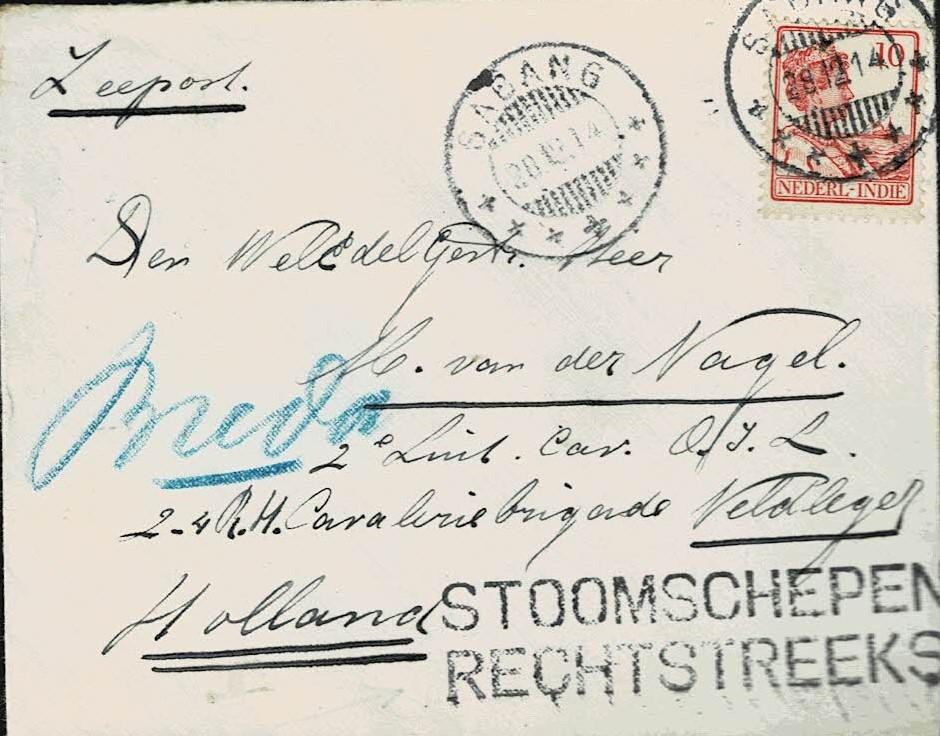 Zeepost.
SABANG
28.12.14
SABANG
28.12.14
10
NEDERL-INDIE
Den WelEdelGestr. Heer
M. van der Nagel.
Breda
2e Luit. Cav. O.I.L.
2-4 R.H. Cavaleriebrigade Veldleger
Holland
STOOMSCHEPEN
RECHTSTREEKS